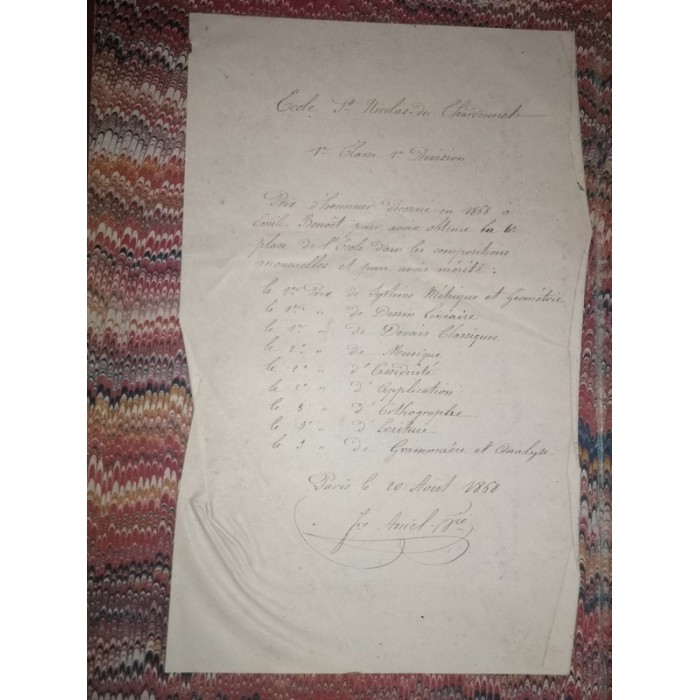 Ecole St Nicolas-du-Chardonnet
1re Classe 1re Division
Prix d'honneur décerné en 1868 à
Emile Benoît pour avoir obtenu la 6e
place de l'Ecole dans les compositions
mensuelles et pour avoir mérité :
le 1er Prix de Système Métrique et Géométrie
le 1er " de Dessin Linéaire
le 1er " de Devoirs Classiques
le 2e " de Musique
le 2e " d'Assiduité
le " d'Application
le 3e " d'Orthographe
le 3e " d'Ecriture
le 3 " de Grammaire et Analyse
Paris le 20 Août 1868